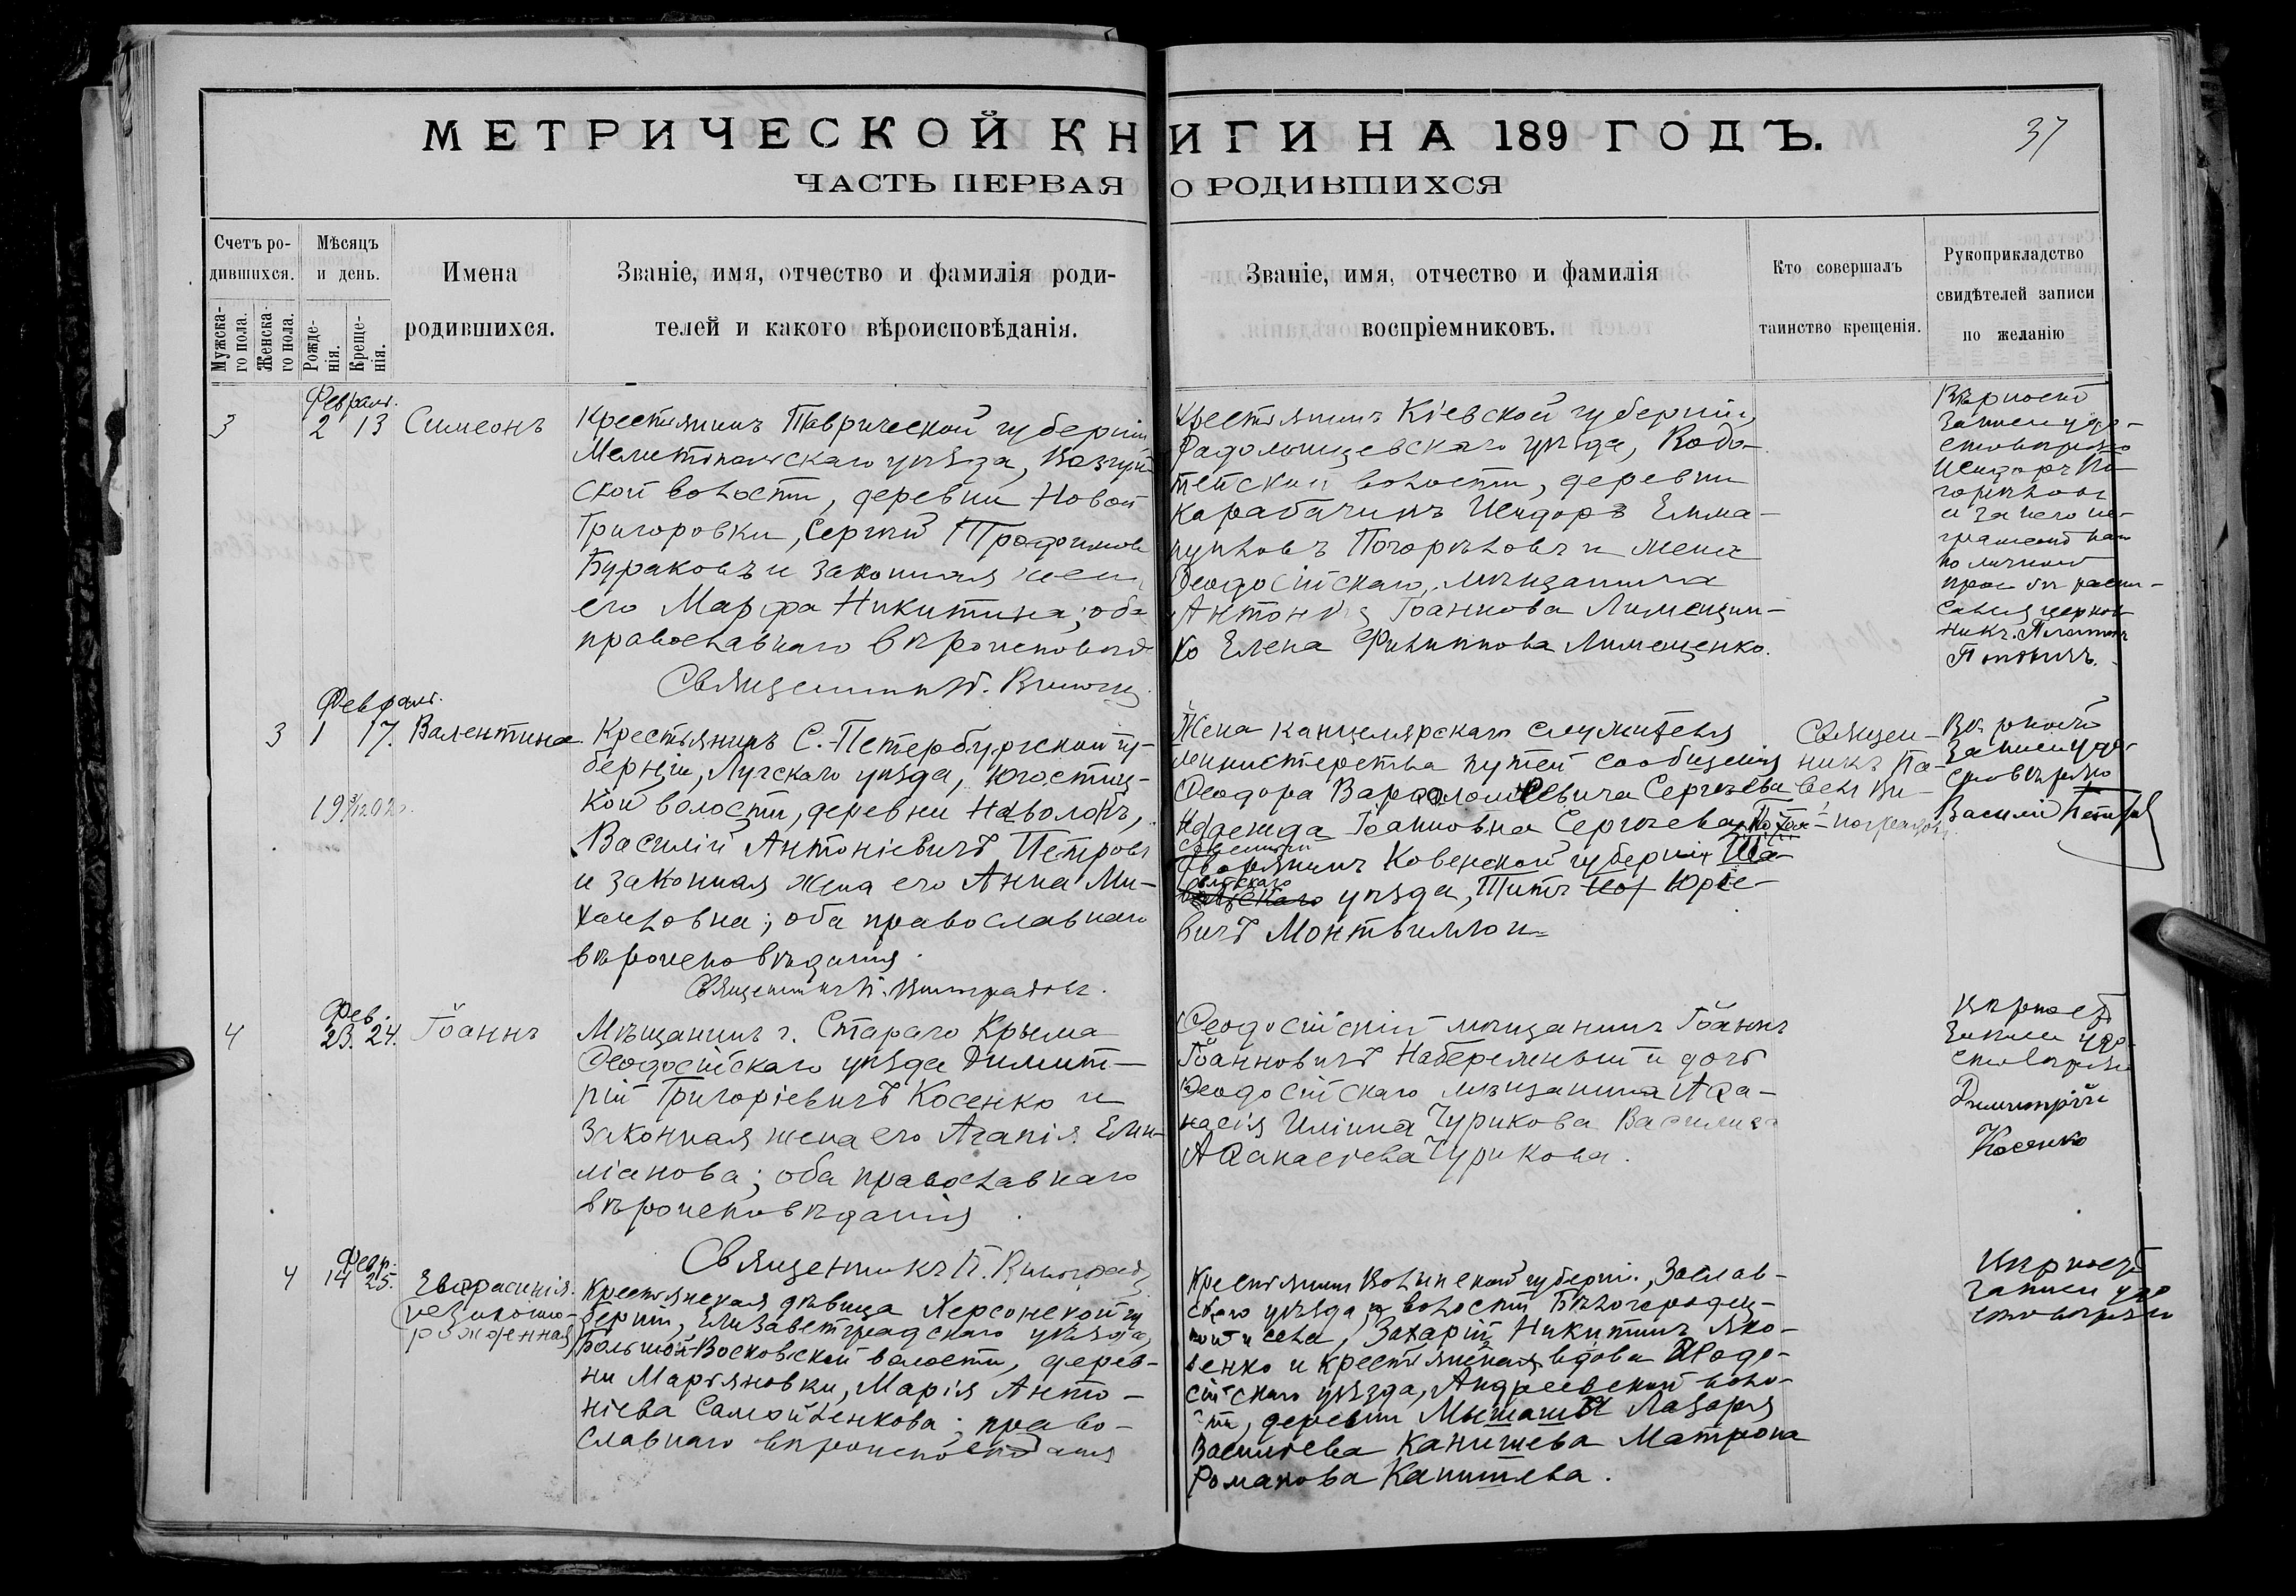 37
МЕТРИЧЕСКОЙ КНИГИ НА 189 ГОДЪ.
ЧАСТЬ ПЕРВАЯ О РОДИВШИХСЯ
Счетъ ро-
дившихся.
Мужска-
го пола.
Женска-
го пола.
Мѣсяцъ
и день.
Рожде-
нія.
Креще-
нія.
Имена
родившихся.
Званіе, имя, отчество и фамилія роди-
телей и какого вѣроисповѣданія.
Званіе, имя, отчество и фамилія
воспріемниковъ.
Кто совершалъ
таинство крещенія.
Рукоприкладство
свидѣтелей записи
по желанію
Февраль.
3 2 13 Симеонъ
Крестьянинъ Таврической губерніи
Мелитопольскаго уѣзда,
ской волости, деревни Новой
Григоровки, Сергій Трофимовъ
Бураковъ и законная жена
его Марфа Никитина; оба
православнаго вѣроисповѣд
Священникъ П. Виногр
Крестьянинъ Кіевской губерніи,
Радомышевскаго уѣзда,
волости, деревни
Карабачинъ Исидоръ Емма-
нуиловъ Погорѣловъ и жена
Ѳеодосійскаго мѣщанина
Антонія Іоаннова Лимещен-
ко Елена Филиппова Лимещенко.
Вѣрность
записи удо-
стовѣряю
Исидоръ По-
горѣловъ
а за него не-
грамотнаго
по личной
прось бѣ распи-
сался церков
никъ Платонъ
Февраль.
3 1 17. Валентина
Крестьянинъ С.-Петербургской гу-
берніи, Лугскаго уѣзда, Югостиц-
кой волости, деревни Наволокъ,
Василій Антоніевичъ Петровъ
и законная жена его Анна Ми-
хаиловна; оба православнаго
вѣроисповѣданія.
Священникъ П. Виноградовъ.
Жена канцелярскаго служителя
министерства путей сообщенія
Ѳеодора Варѳоломеевича Сергѣева
Надежда Іоанновна Сергѣева
дворянинъ Ковенской губерніи Ша-
уѣзда, Титъ Юрье-
вичъ Монтвилло
Священ-
никъ Па-
велъ Ви-
ноградовъ
Вѣрность
записи удо-
стовѣряю
Василій Петровъ
Фев.
4 23. 24. Іоаннъ
Мѣщанинъ г. Стараго Крыма
Ѳеодосійскаго уѣзда Димит-
рій Григоріевичъ Косенко и
законная жена его Агапія Еми-
ліанова; оба православнаго
вѣроисповѣданія
Священникъ П. Виноград
Ѳеодосійскій мѣщанинъ Іоаннъ
Іоанновичъ Набережный и дочь
Ѳеодосійскаго мѣщанина Аѳа-
насія Иліина Чурикова Василиса
Аѳанасіева Чурикова.
Вѣрность
записи удо-
стовѣряю
Димитрій
Косенко
Февр.
4 14 25. Евфрасинія
(незаконно-
рожденная)
Крестьянская дѣвица Херсонской гу
берніи, Елизаветградскаго уѣзда,
волости, дерев-
ни Марьяновки, Марія Анто-
ніева Самойленкова; право-
славнаго вѣроисповѣданія
Крестьянинъ Волынской губерніи, Заслав-
скаго уѣзда, волости Бѣлогородец-
кой и села, Захарій Никитинъ Яко-
венко и крестьянская вдова Ѳеодо-
сійскаго уѣзда, Андреевской воло-
сти, деревни Лазаря
Васильева Канишева Матрона
Романова Канишева.
Вѣрность
записи удо
стовѣряю